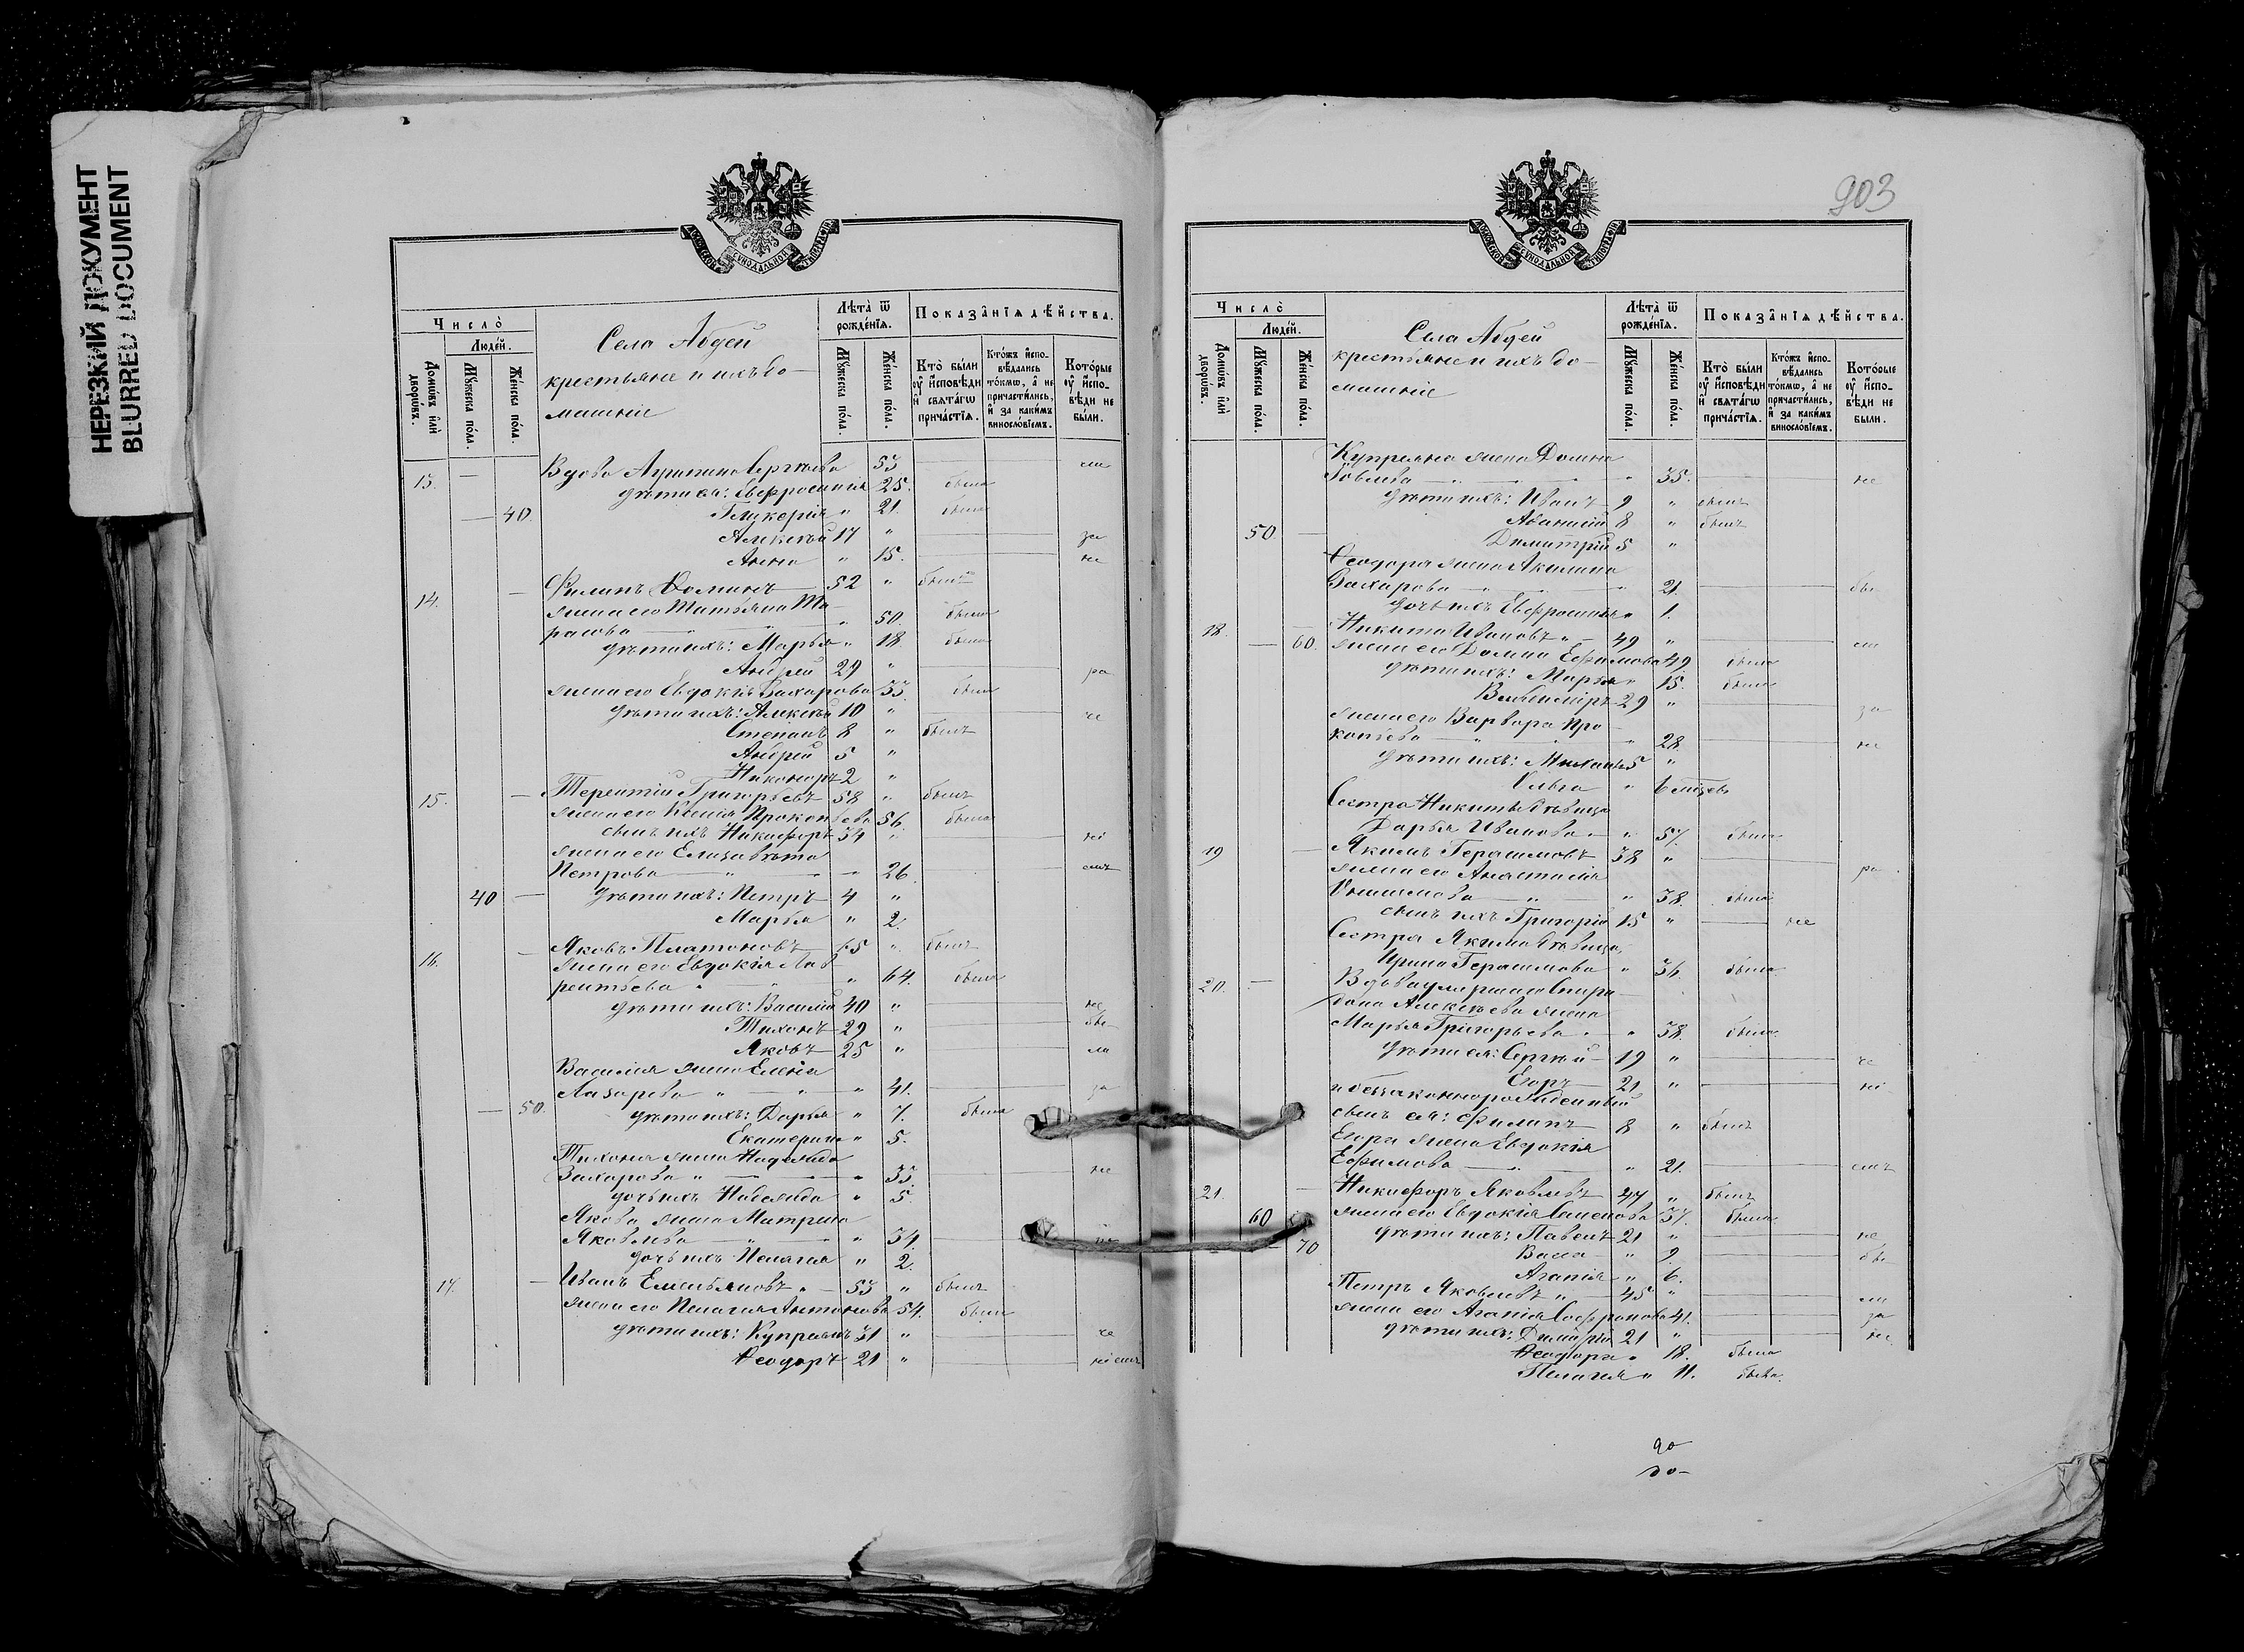 НЕРЕЗКИЙ ДОКУМЕНТ
BLURRED DOCUMENT
МОСКОВСКОЙ СѴНОДАЛЬНОЙ ТИПОГРАФІИ
Число̀
Людѐй.
Домѡ́въ и҆лѝ дворѡ́въ.
Мꙋ́жеска по́ла.
Же́нска по́ла.
Села Абдей
крестьяне и ихъ до-
машніе
Лѣта̀ ѿ рожде́нїѧ.
Мꙋ́жеска по́ла.
Же́нска по́ла.
Показа̂нїѧ дѣ́йства.
Кто̀ бы́ли ᲂу҆ и҆споⷡ҇ѣди и҆ свѧта́гѡ прича́стїѧ.
Кто́жъ и҆спо­вѣ́дались то́кмѡ, а҆ не причасти́лись, и҆ за каки́мъ винослóвїемъ.
Кото́рые ᲂу҆ и҆спо­вѣди не бы́ли.
13. — Вдова Агрипина Сергѣева 53
дѣти ея: Евфросинія 25. была
— 40. Гликерія " 21. была
Алексѣй 17 " за
Анна " 15. не
14. — Филипъ Ѳоминъ 52 " былъ
жена его Татьяна Та-
расова " 50. была
дѣти ихъ: Марья " 18. была
Андрей 29 " ра
жена его Евдокія Захарова 33. была
дѣти ихъ: Алексѣй 10 " не
Степанъ 8 " былъ
Андрей 5 "
Никоноръ 2 "
15. — Терентій Григорьевъ 58 " былъ
жена его Ксенія Прокопьева 56. была
сынъ ихъ Никифоръ 34 "
жена его Елизавѣта
Петрова " 26.
40 — дѣти ихъ: Петръ 4 "
Марья " 2.
16. — Яковъ Платоновъ 65 " былъ
жена его Евдокія Лав-
рентьева " 64. была
дѣти ихъ: Василій 40 " не
Тихонъ 29 " бы-
Яковъ 25 " ли
Василія жена Елена
Лазарева " 41. за
— 50. дѣти ихъ: Дарья " 7. была
Екатерина " 5.
Тихона жена Надежда
Захарова " 33. не
дочь ихъ Надежда " 5.
Якова жена Матрена
Яковлева " 34.
дочь ихъ Пелагія " 2.
17. — Иванъ Емельяновъ " 53 " былъ
жена его Пелагія Антонова 54. была
дѣти ихъ: Купріянъ 31 " не
Ѳеодоръ 21 "
903
МОСКОВСКОЙ СѴНОДАЛЬНОЙ ТИПОГРАФІИ
Число̀
Людѐй.
Домѡ́въ и҆лѝ дворѡ́въ.
Мꙋ́жеска по́ла.
Же́нска по́ла.
Села Абдей
крестьяне и ихъ до-
машніе
Лѣта̀ ѿ рожде́нїѧ.
Мꙋ́жеска по́ла.
Же́нска по́ла.
Показа̂нїѧ дѣ́йства.
Кто̀ бы́ли ᲂу҆ и҆споⷡ҇ѣди и҆ свѧта́гѡ прича́стїѧ.
Кто́жъ и҆спо­вѣ́дались то́кмѡ, а҆ не причасти́лись, и҆ за каки́мъ винослóвїемъ.
Кото́рые ᲂу҆ и҆спо­вѣди не бы́ли.
Купреяна жена Домна
Іовлева " 35. не
дѣти ихъ: Иванъ 9 " былъ
Аѳанасій 8 " былъ
50. — Димитрій 5 "
Ѳеодора жена Акилина
Захарова " 21. бы-
дочь ихъ Евфросинія " 1.
18. — 60. Никита Ивановъ " 49 " ли
жена его Домна Ефимова 49. была
дѣти ихъ: Марья " 15. была
Владиміръ 29 " за
жена его Варвара Про-
копьева " 28. не
дѣти ихъ: Михаилъ 5 "
Ольга " 6 мѣсяцевъ
Сестра Никиты дѣвица
Дарья Иванова " 57. была
19 — Якимъ Герасимовъ 38 " ра
жена его Анастасія
Онисимова " 38. была
сынъ ихъ Григорій 15 " не
Сестра Якима дѣвица
Ирина Герасимова " 36. была
20. — Вдова умершаго Спири-
дона Алексѣева жена
Марья Григорьева " 38. была
дѣти ея: Сергѣй 19 " не
Егоръ 21 "
и беззаконнорожденный
сынъ ея: Филипъ 8 " былъ
Егора жена Евдокія
Ефимова " 21.
21. — Никифоръ Яковлевъ 47 " былъ
60 жена его Евдокія Семенова 37. была
— 70 дѣти ихъ: Павелъ 21 " не
Васса " 9. бы-
Агапія " 6.
Петръ Яковлевъ " 45 " ли
жена его Агапія Софронова 41. за
дѣти ихъ: Димитрій 21 " не
Ѳеодора " 18. была
Пелагія " 11. была.